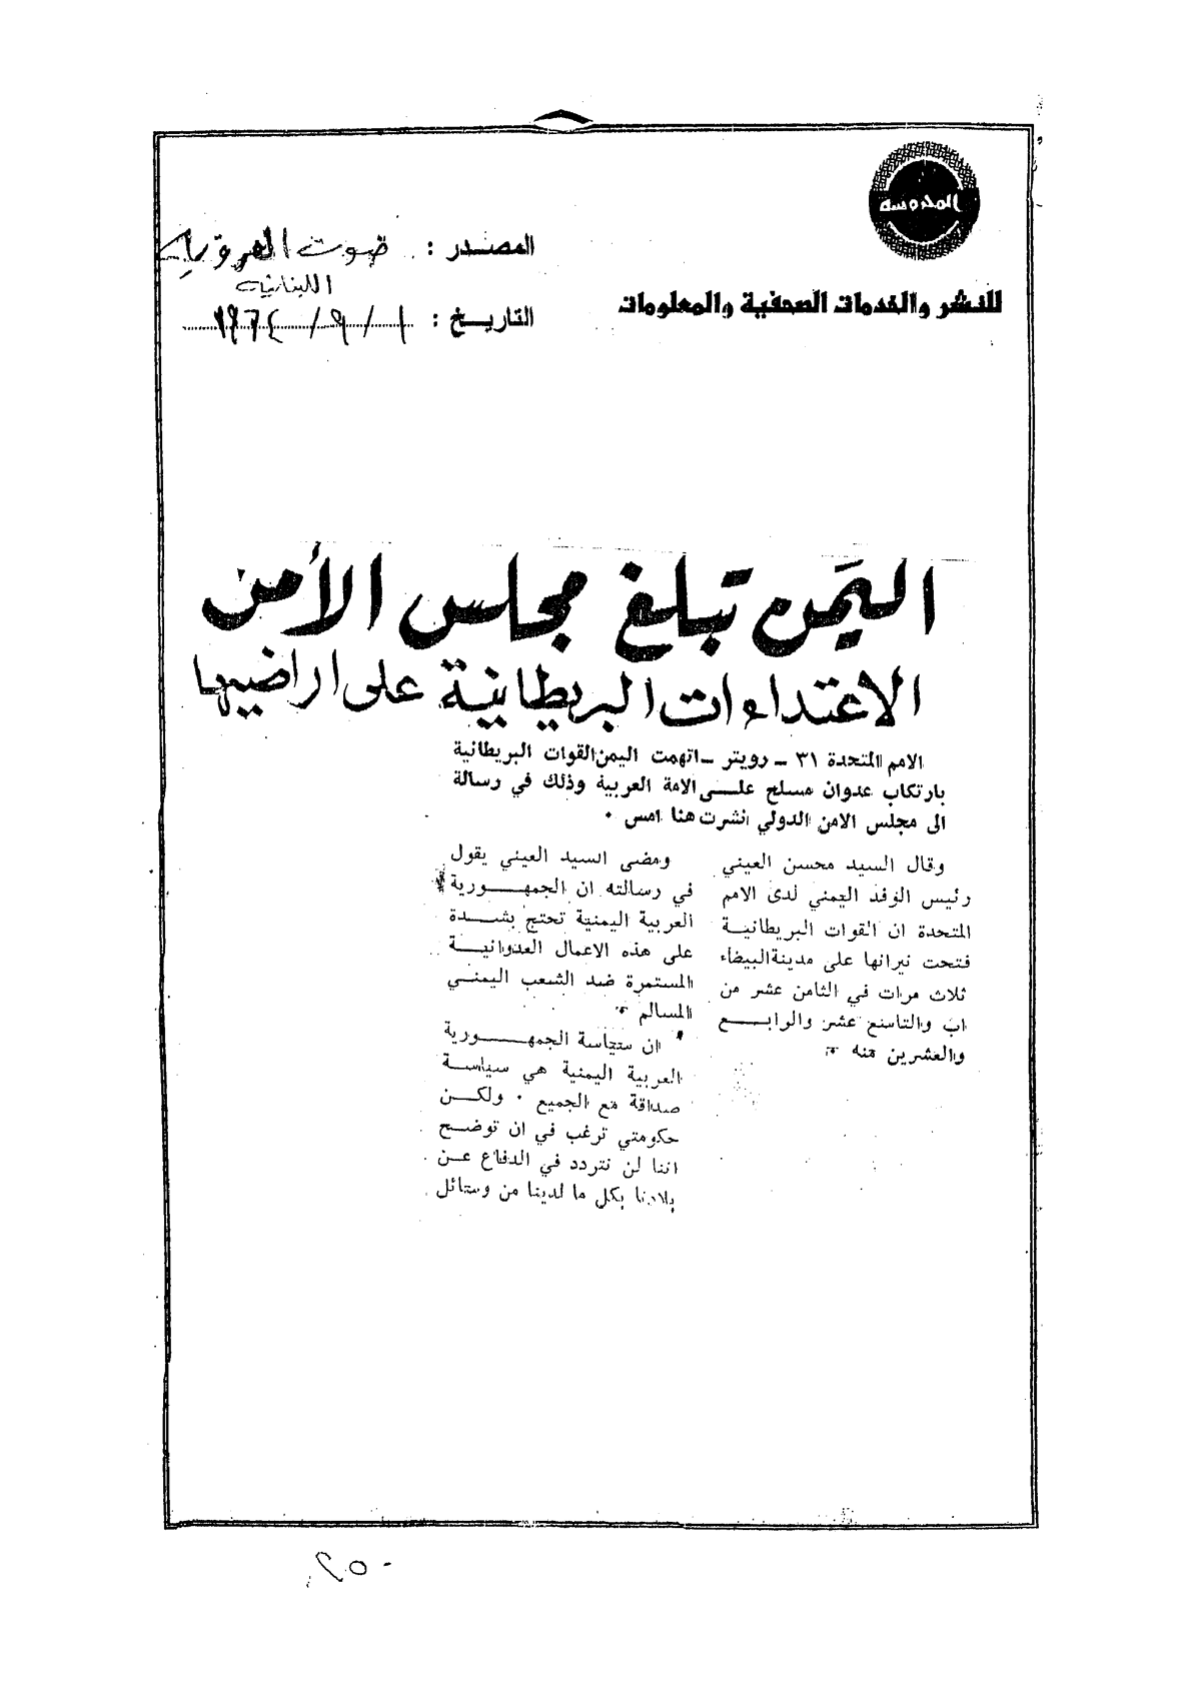 المحروسة
للنشر والخدمات الصحفية والمعلومات
المصدر : صوت العروبة
اللبنانية
التاريخ : ١ / ٩ / ١٩٦٤
اليمن تبلغ مجلس الأمن
الاعتداءات البريطانية على اراضيها
الامم المتحدة ٣١ - رويتر - اتهمت اليمن القوات البريطانية
بارتكاب عدوان مسلح على الامة العربية وذلك في رسالة
الى مجلس الامن الدولي نشرت هنا امس ٠
وقال السيد محسن العيني
رئيس الوفد اليمني لدى الامم
المتحدة ان القوات البريطانية
فتحت نيرانها على مدينة البيضاء
ثلاث مرات في الثامن عشر من
اب والتاسع عشر والرابع
والعشرين منه ٠
ومضى السيد العيني يقول
في رسالته ان الجمهورية
العربية اليمنية تحتج بشدة
على هذه الاعمال العدوانية
المستمرة ضد الشعب اليمني
المسالم ٠
ان سياسة الجمهورية
العربية اليمنية هي سياسة
صداقة مع الجميع ٠ ولكن
حكومتي ترغب في ان توضح
اننا لن نتردد في الدفاع عن
بلادنا بكل ما لدينا من وسائل